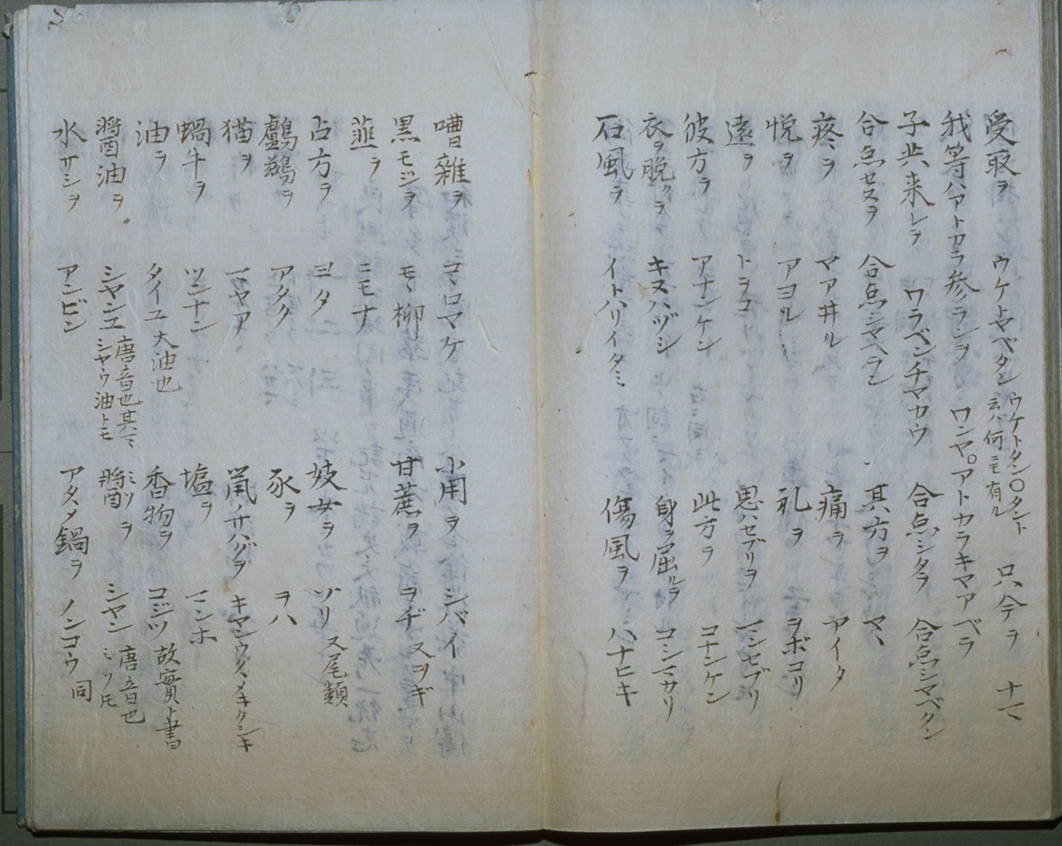 受取ヲ ウケトヤベタン ウケトタン○タント云ハ何ニモ有ル 只今ヲ 十マ
我等ハアトカラ参ランヲ ワンヤ○アトカラキマアベラ
子共来レヲ ワラベンチマカウ 合点シタヲ 合点シマベタン
合点セスヲ 合点シマヘラン 其方ヲ マヽ
疼ヲ マアヰル 痛ヲ アイタ
悦ヲ アヨル 礼ヲ ヲボコリ
遠ヲ トラコ 思ハセブリヲ マンセブリ
彼方ヲ アナンケン 此方ヲ コナンケン
衣ヲ脱クヲ キヌハヅシ 身ヲ屈ルヲ コシマカリ
石風ヲ イトハリイタミ 傷風ヲ ハナヒキ
嘈雜ヲ コヽロマケ 小用ヲ シバイ
黒モジヲ モヽ柳 甘蔗ヲ ヲヂ 又ヲギ
韮ヲ ニモナ
占方ヲ ヨタ 妓女ヲ ヅリ 又尾類
鸕鷀ヲ アタク 豕ヲ ヲハ
猫ヲ マヤア
蝸牛ヲ ツンナン 塩ヲ マンホ
油ヲ タイユ 大油也 香物ヲ コジツ 故實ト書
醤油ヲ シヤンユ 唐音也其マヽシヤウ油トモ 醤ヲ シヤン 唐音也ミソ氏
水サシヲ アンビン アタヽメ鍋ヲ ノンコウ 同